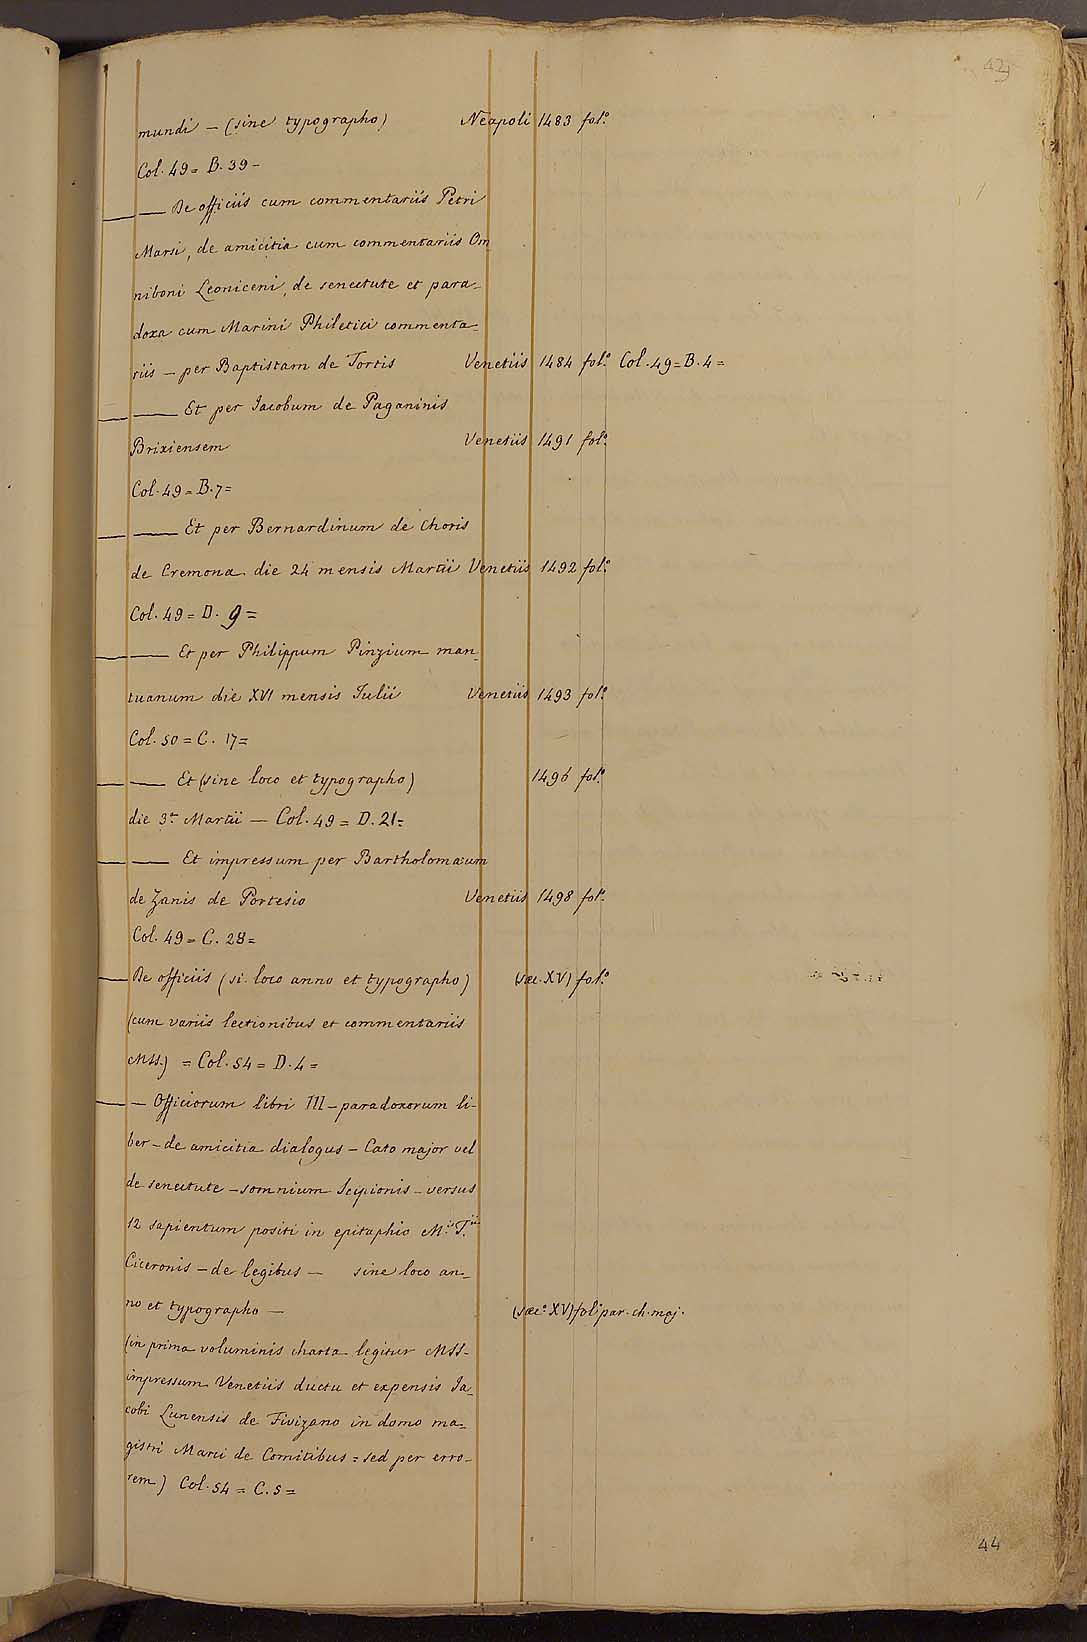 42
mundi – (sine typographo) Neapoli 1483 fol.º
Col. 49 = B. 39 –
—— De officiis cum commentariis Petri
Marsi, de amicitia cum commentariis Om
niboni Leoniceni, de senectute et para-
doxa cum Marini Philetici commenta-
riis – per Baptistam de Tortis Venetiis 1484 fol.º Col. 49 = B. 4 =
—— Et per Iacobum de Paganinis
Brixiensem Venetiis 1491 fol.º
Col. 49 = B. 7 =
—— Et per Bernardinum de Choris
de Cremona die 24 mensis Martii Venetiis 1492 fol.º
Col. 49 = D. 9 =
—— Et per Philippum Pinzium man-
tuanum die XVI mensis Iulii Venetiis 1493 fol.º
Col. 50 = C. 17 =
—— Et (sine loco et typographo) 1496 fol.º
die 3ª Martii — Col. 49 = D. 21 =
—— Et impressum per Bartholomæum
de Zanis de Portesio Venetiis 1498 fol.º
Col. 49 = C. 28 =
— De officiis (si. loco anno et typographo) (sæc. XV) fol.º
(cum variis lectionibus et commentariis
MSS.) = Col. 54 = D. 4 =
— Officiorum libri III – paradoxorum li-
ber – de amicitia dialogus – Cato major vel
de senectute – somnium Scipionis – versus
12 sapientum positi in epitaphio M.ii T.ii
Ciceronis – de legibus – sine loco an-
no et typographo — (sæc.º XV) fol.º par. ch. maj.
(in prima voluminis charta legitur MSS-
impressum Venetiis ductu et expensis Ia-
cobi Lunensis de Fivizano in domo ma-
gistri Marci de Comitibus = sed per erro-
rem) Col. 54 = C. 5 =
44